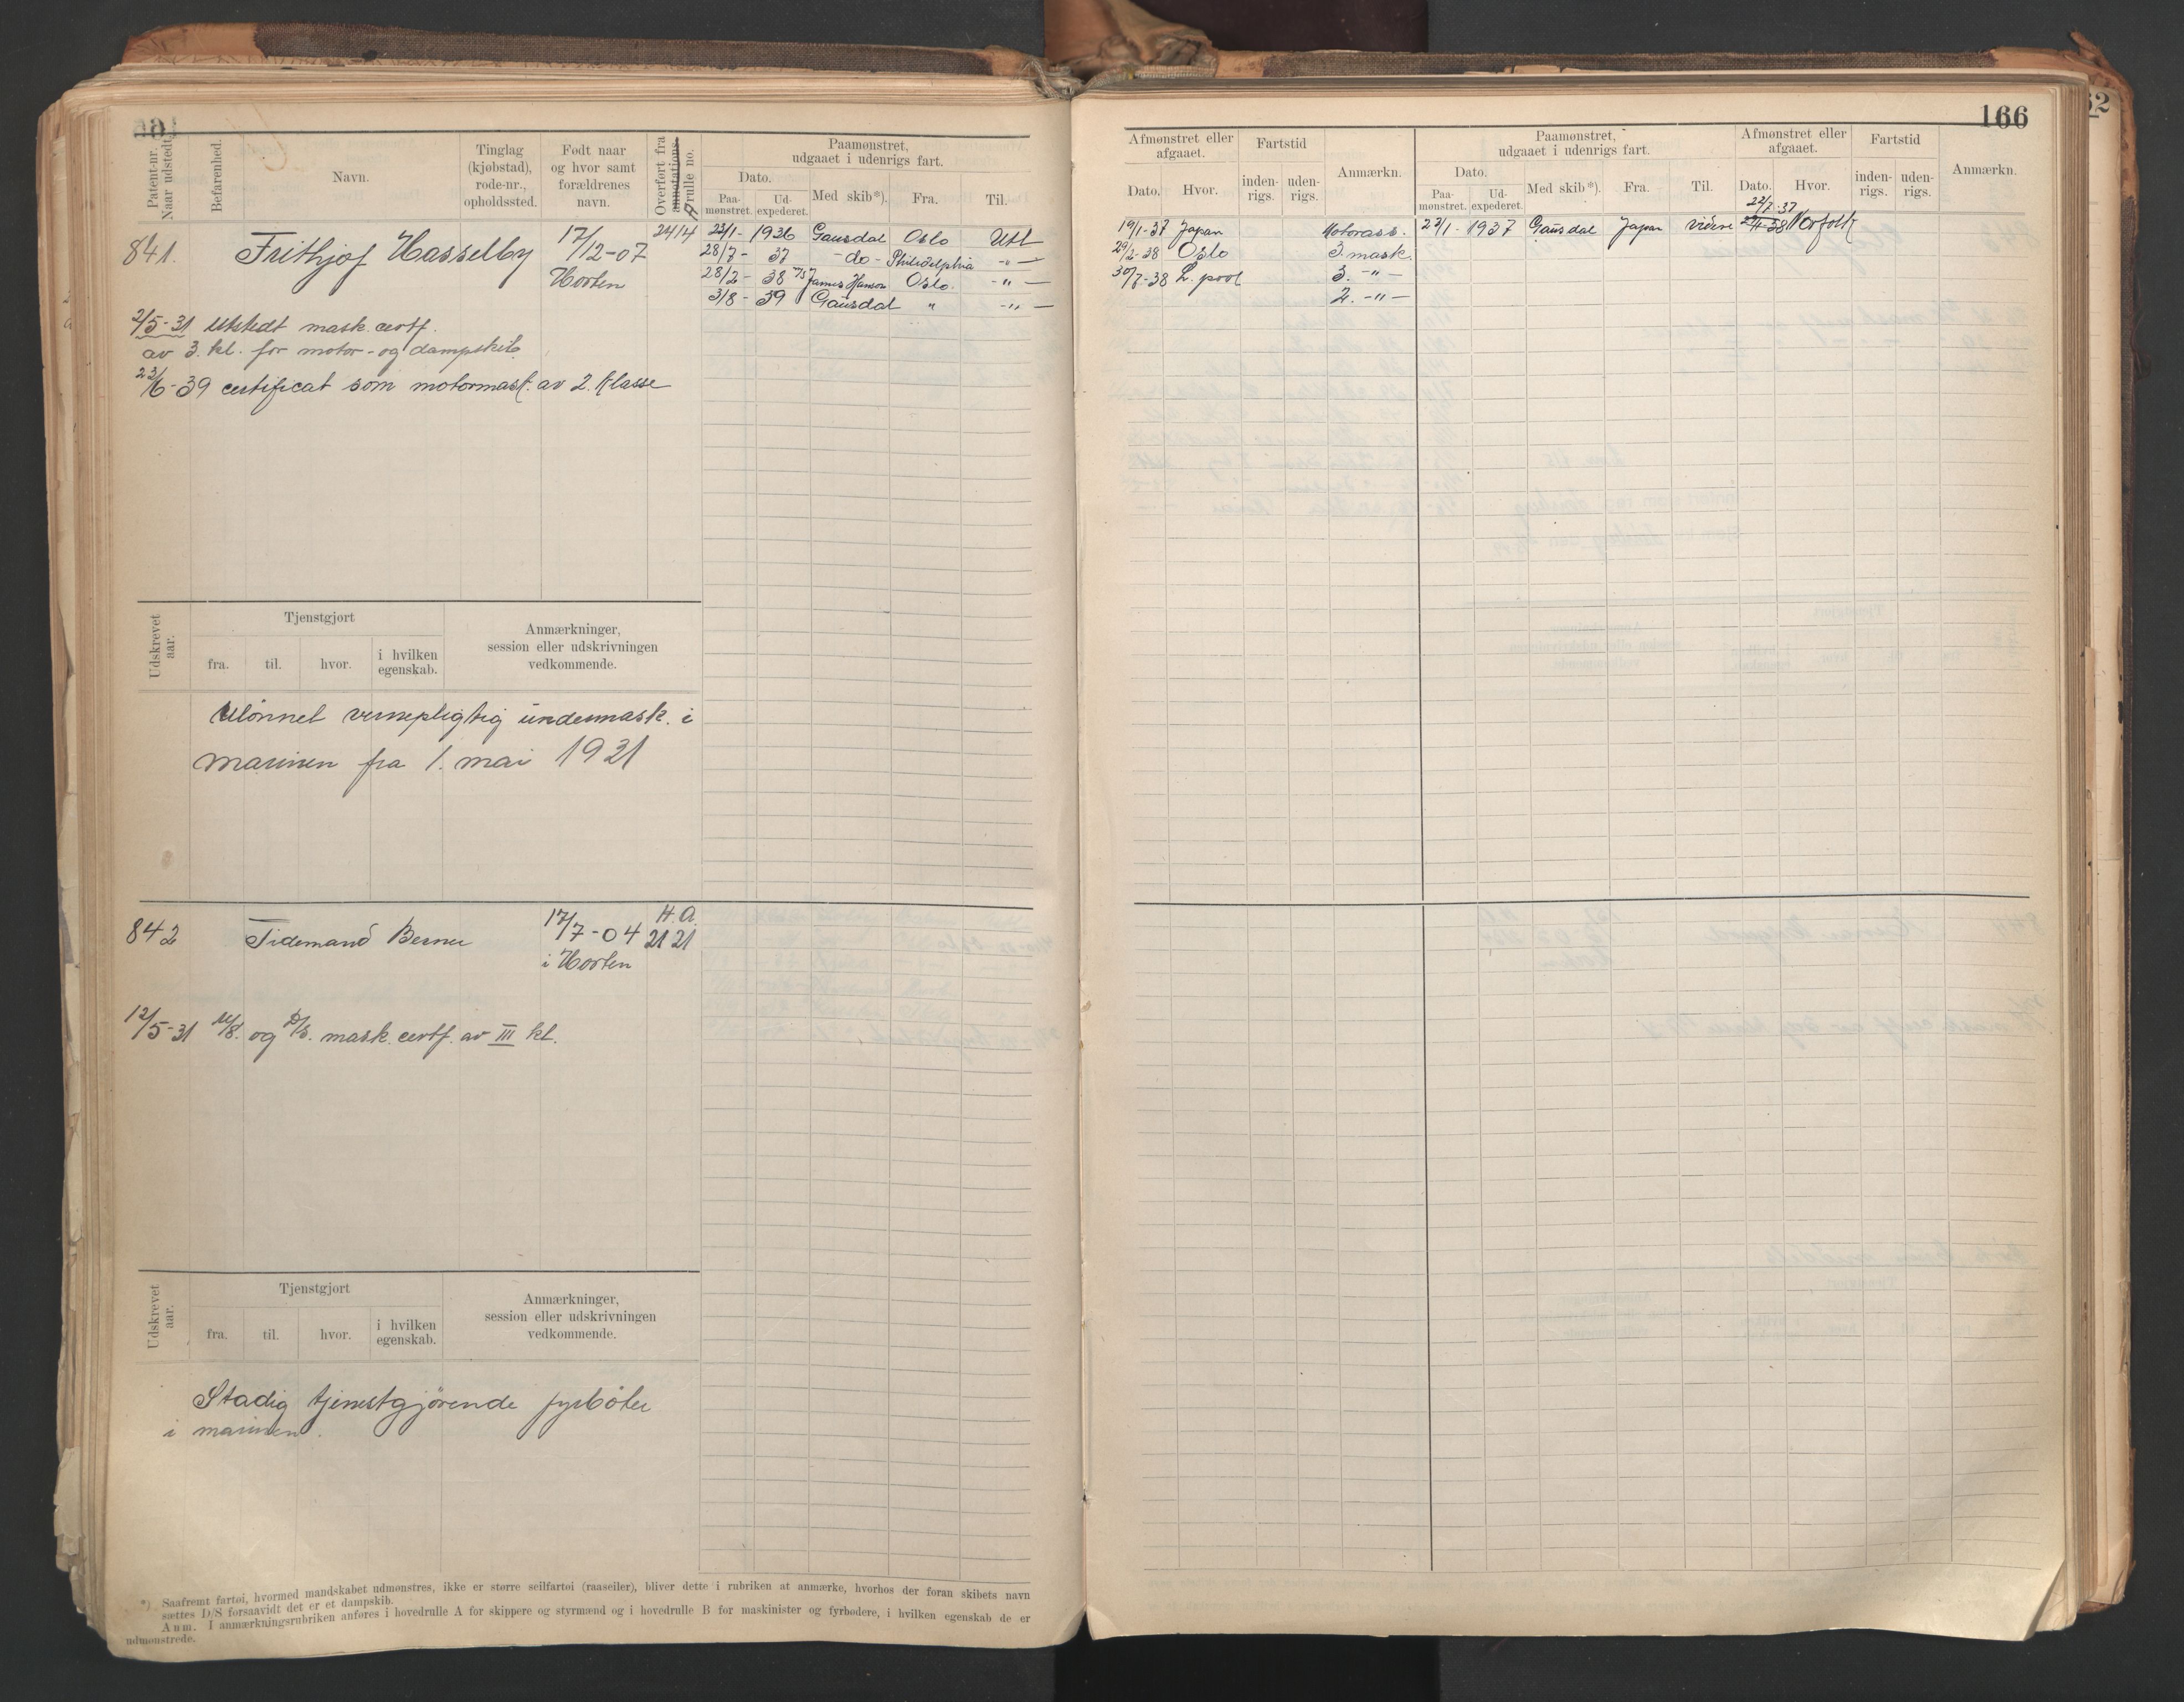 166
Patent-nr.
Naar udstedt
Befarenhed.
Navn.
Tinglag
(kjøbstad),
rode-nr.,
opholdssted.
Født naar
og hvor samt
forældrenes
navn.
Overført fra
annotations-
rulle no.
Paamønstret,
udgaaet i udenrigs fart.
Dato.
Paa-
mønstret.
Ud-
expederet.
Med skib*).
Fra.
Til.
841.
Frithjof Hasselby
17/12-07
Horten
2414
23/1- 1936 Gausdal Oslo Utl
28/7- 37 -do- Philidelphia -"-
28/2- 38 M/S James Hanson Oslo. -"-
3/8- 39 Gausdal " -"-
2/5-31 Utstedt mask. certf.
av 3. kl. for motor- og dampskib
23/6-39 certificat som motormask. av 2. klasse
Udskrevet
aar.
Tjenstgjort
fra.
til.
hvor.
i hvilken
egenskab.
Anmærkninger,
session eller udskrivningen
vedkommende.
Ulönnet vernepligtig undermask. i
marinen fra 1. mai 1931
842
Tidemand Berner
17/7-04
i Horten
H.A.
2121
12/5-31 M/S. og D/S. mask. certf. av III kl.
Udskrevet
aar.
Tjenstgjort
fra.
til.
hvor.
i hvilken
egenskab.
Anmærkninger,
session eller udskrivningen
vedkommende.
Stadig tjenestgjörende fyrböter
i marinen.
*) Saafremt fartøi, hvormed mandskabet udmønstres, ikke er større seilfartøi (raaseiler), bliver dette i rubriken at anmærke, hvorhos der foran skibets navn
sættes D/S forsaavidt det er et dampskib.
Anm. I anmærkningsrubriken anføres i hovedrulle A for skippere og styrmænd og i hovedrulle B for maskinister og fyrbødere, i hvilken egenskab de er
udmønstrede.
166
Afmønstret eller
afgaaet.
Dato.
Hvor.
Fartstid
inden-
rigs.
uden-
rigs.
Anmærkn.
Paamønstret,
udgaaet i udenrigs fart.
Dato.
Paa-
mønstret.
Ud-
expederet.
Med skib*).
Fra.
Til.
Afmønstret eller
afgaaet.
Dato.
Hvor.
Fartstid
inden-
rigs.
uden-
rigs.
Anmærkn.
22/7-37
19/1-37 Japan Motorass. 23/1- 1937 Gausdal Japan videre Norfolk
29/2-38 Oslo 3. mask.
30/7-38 L. pool 3. -"-
2. -"-